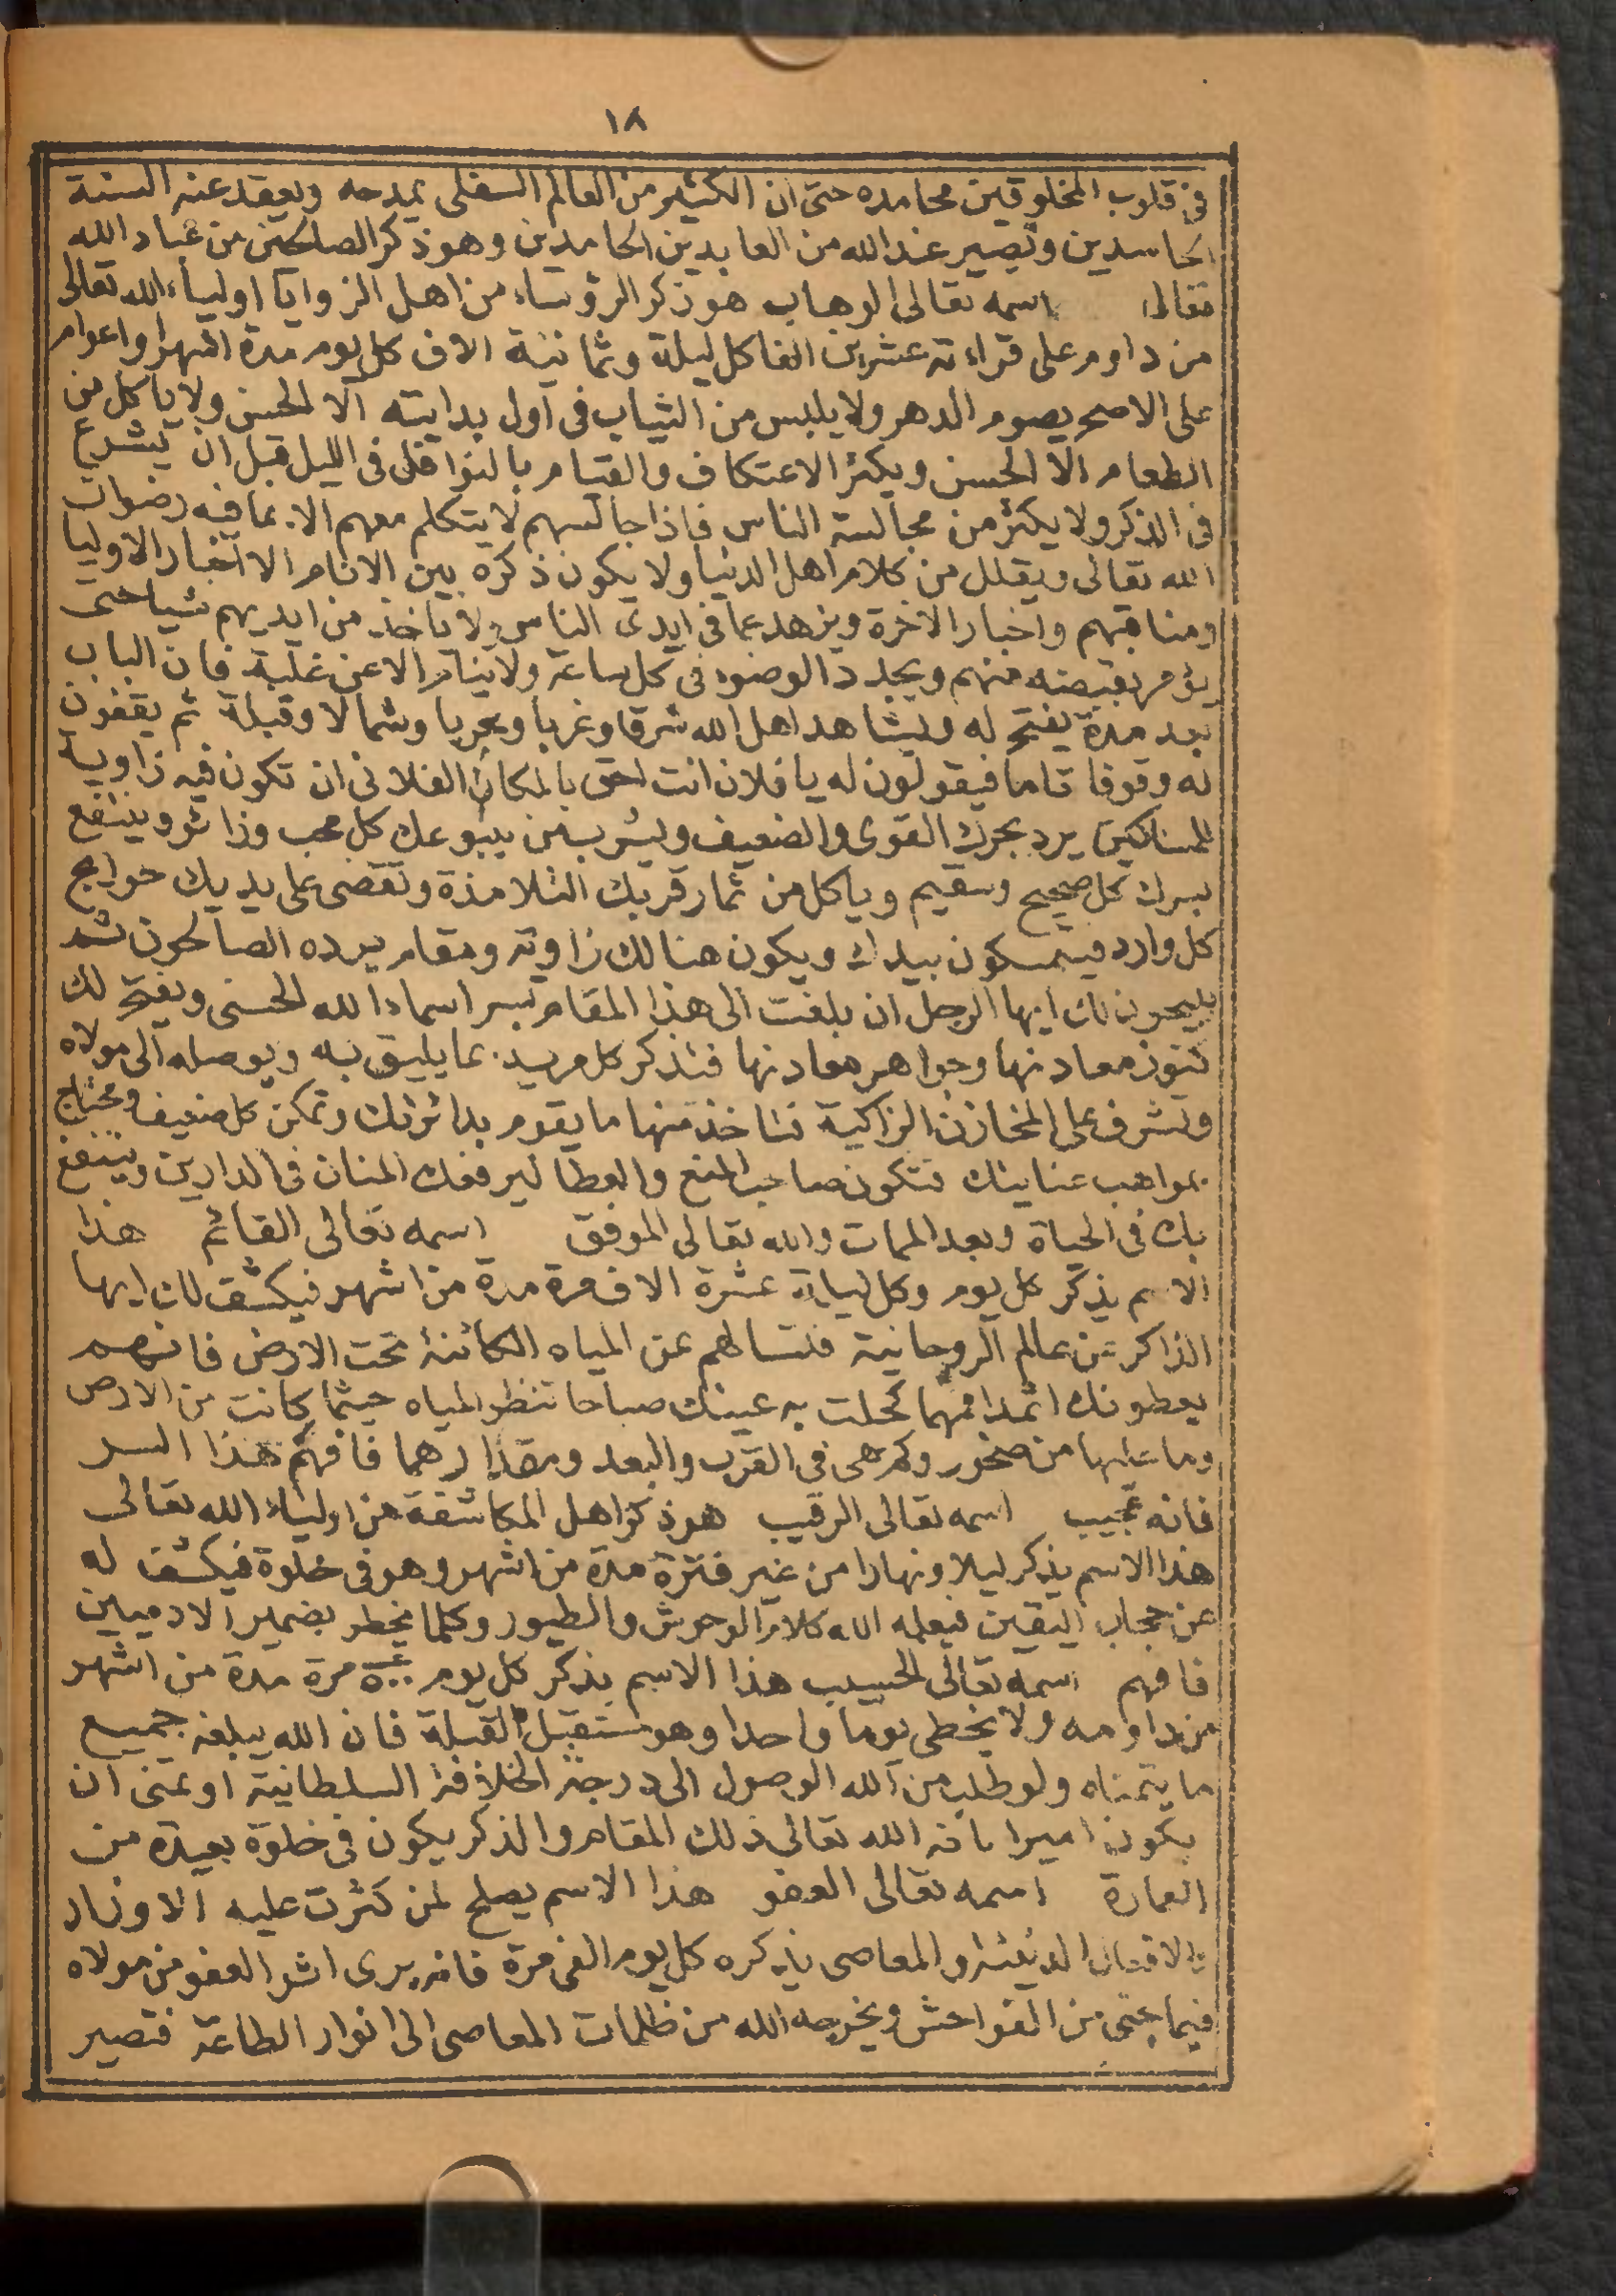 ١٨
فى قلوب المخلوقين محامده حتى ان الكثير من العالم السفلى يمدحه ويعقد عنه السنة
الحاسدين ونصير عند الله من العابدين الحامدين وهو ذكر الصالحين من عباد الله
تعالى اسمه تعالى الوهاب هو ذكر الرؤساء من اهل الزوايا اولياء الله تعالى
من داوم على قراءته عشرين الفا كل ليلة وثمانية الاف كل يوم مدة اشهر او اعوام
على الاصح يصوم الدهر ولا يلبس من الثياب فى اول بدايته الا الحسن ولا ياكل من
الطعام الا الحسن ويكثر الاعتكاف والقيام بالنوافل فى الليل قبل ان يشرع
فى الذكر ولا يكثر من مجالسة الناس فاذا جالسهم لا يتكلم معهم الا بما فيه رضوان
الله تعالى ويقلل من كلام اهل الدنيا ولا يكون ذكره بين الانام الا اخبار الاوليا
ومناقبهم واخبار الاخرة ويزهد عما فى ايدى الناس ولا ياخذ من ايديهم شيا حتى
يؤمر بقبضه منهم ويجدد الوضوء فى كل ساعة ولا ينام الا عن غلبة فان الباب
بعد مدة يفتح له ويشاهد اهل الله شرقا وغربا وبحريا وشمالا وقبلة ثم يقفون
له وقوفا تاما فيقولون له يا فلان انت احق بالمكان الفلانى ان تكون فيه زاوية
للمساكين يرد بحرك القوى والضعيف ويشرب من ينبوعك كل محب وزائر وينتفع
بسرك كل صحيح وسقيم وياكل من ثمار قربك التلامذة وتقضى على يديك حوايج
كل وارد فيتمسكون بيدك ويكون هنالك زاوية ومقام يرده الصالحون ثم
يبيحون لك ايها الرجل ان بلغت الى هذا المقام بسر اسماء الله الحسنى ويفتح لك
كنوز معادنها وجواهر معادنها فتذكر كل مريد بما يليق به ويوصله الى مولاه
وتشرف على المخازن الزاكية فتاخذ منها ما يقوم بدائرتك وتمكن كل ضعيف ومحتاج
بمواهب عنايتك فتكون صاحب المنع والعطا ليرفعك المنان فى الدارين وينتفع
بك فى الحياة وبعد الممات والله تعالى الموفق اسمه تعالى القائم هذا
الاسم يذكر كل يوم وكل ليلة عشرة الاف مرة مدة من اشهر فيكشف لك ايها
الذاكر عن عالم الروحانية فتسالهم عن المياه الكائنة تحت الارض فانهم
يعطونك اثمدا مهما كحلت به عينك صباحا تنظر المياه حيثما كانت من الارض
وما عليها من صخور وكم هى فى القرب والبعد ومقدارهما فافهم هذا السر
فانه عجيب اسمه تعالى الرقيب هو ذكر اهل المكاشفة من اولياء الله تعالى
هذا الاسم يذكر ليلا ونهارا من غير فترة مدة من اشهر وهو فى خلوة فيكشف له
عن حجاب اليقين فيعلمه الله كلام الوحوش والطيور وكلما يخطر بضمير الادميين
فافهم اسمه تعالى الحسيب هذا الاسم يذكر كل يوم مرة مدة من اشهر
من داومه ولا يخطى يوما واحدا وهو مستقبل القبلة فان الله يبلغه جميع
ما يتمناه ولو طلب من الله الوصول الى درجة الخلافة السلطانية او تمنى ان
يكون اميرا الله تعالى ذلك المقام والذكر يكون فى خلوة بعيدة من
العمارة اسمه تعالى العفو هذا الاسم يصلح لمن كثرت عليه الاوزار
والافعال الدنيئة والمعاصى يذكره كل يوم الفى مرة فانه يرى اثر العفو من مولاه
فيما جنى من الفواحش ويخرجه الله من ظلمات المعاصى الى انوار الطاعة فتصير